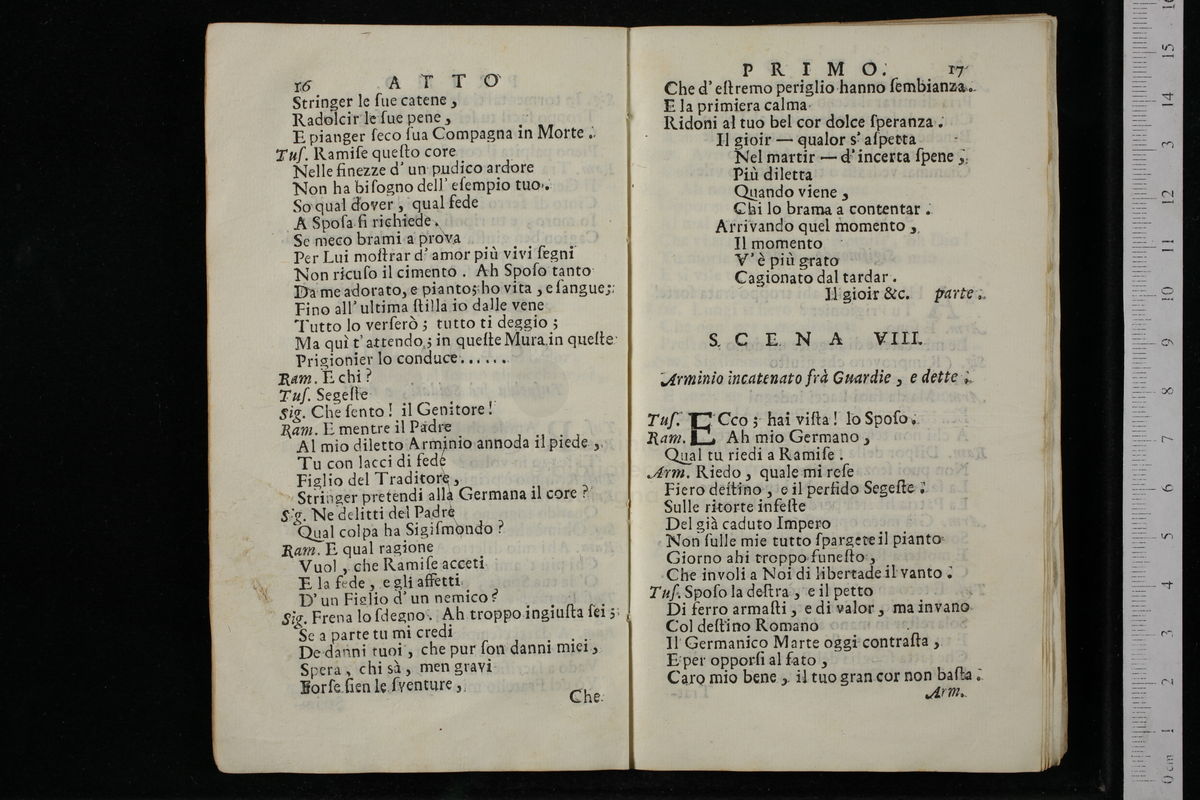 16 ATTO
Stringer le ſue catene,
Radolcir le ſue pene,
E pianger ſeco ſua Compagna in Morte.
Tuſ. Ramiſe queſto core
Nelle finezze d'un pudico ardore
Non ha biſogno dell' eſempio tuo.
So qual dover, qual fede
A Spoſa ſi richiede.
Se meco brami a prova
Per Lui moſtrar d'amor più vivi ſegni
Non ricuſo il cimento. Ah Spoſo tanto
Da me adorato, e pianto; ho vita, e ſangue;
Fino all' ultima ſtilla io dalle vene
Tutto lo verſerò; tutto ti deggio;
Ma quì t'attendo; in queſte Mura in queſte
Prigionier lo conduce......
Ram. E chi?
Tuſ. Segeſte
Sig. Che ſento! il Genitore!
Ram. E mentre il Padre
Al mio diletto Arminio annoda il piede,
Tu con lacci di fede
Figlio del Traditore,
Stringer pretendi alla Germana il core?
Sig. Ne delitti del Padre
Qual colpa ha Sigiſmondo?
Ram. E qual ragione
Vuol, che Ramiſe acceti
E la fede, e gli affetti
D'un Figlio d'un nemico?
Sig. Frena lo ſdegno. Ah troppo ingiuſta ſei;
Se a parte tu mi credi
De danni tuoi, che pur ſon danni miei,
Spera, chi sà, men gravi
Forſe ſien le ſventure,
Che
PRIMO. 17
Che d'eſtremo periglio hanno ſembianza.
E la primiera calma
Ridoni al tuo bel cor dolce ſperanza.
Il gioir — qualor s'aſpetta
Nel martir — d'incerta ſpene,
Più diletta
Quando viene,
Chi lo brama a contentar.
Arrivando quel momento,
Il momento
V'è più grato
Cagionato dal tardar.
Il gioir &c. parte.
SCENA VIII.
Arminio incatenato frà Guardie, e dette.
Tuſ. ECco; hai viſta! lo Spoſo.
Ram. Ah mio Germano,
Qual tu riedi a Ramiſe.
Arm. Riedo, quale mi reſe
Fiero deſtino, e il perfido Segeſte.
Sulle ritorte infeſte
Del già caduto Impero
Non ſulle mie tutto ſpargete il pianto
Giorno ahi troppo funeſto,
Che involi a Noi di libertade il vanto.
Tuſ. Spoſo la deſtra, e il petto
Di ferro armaſti, e di valor, ma invano
Col deſtino Romano
Il Germanico Marte oggi contraſta,
E per opporſi al fato,
Caro mio bene, il tuo gran cor non baſta.
Arm.
0 cm 1 2 3 4 5 6 7 8 9 10 11 12 13 14 15 16